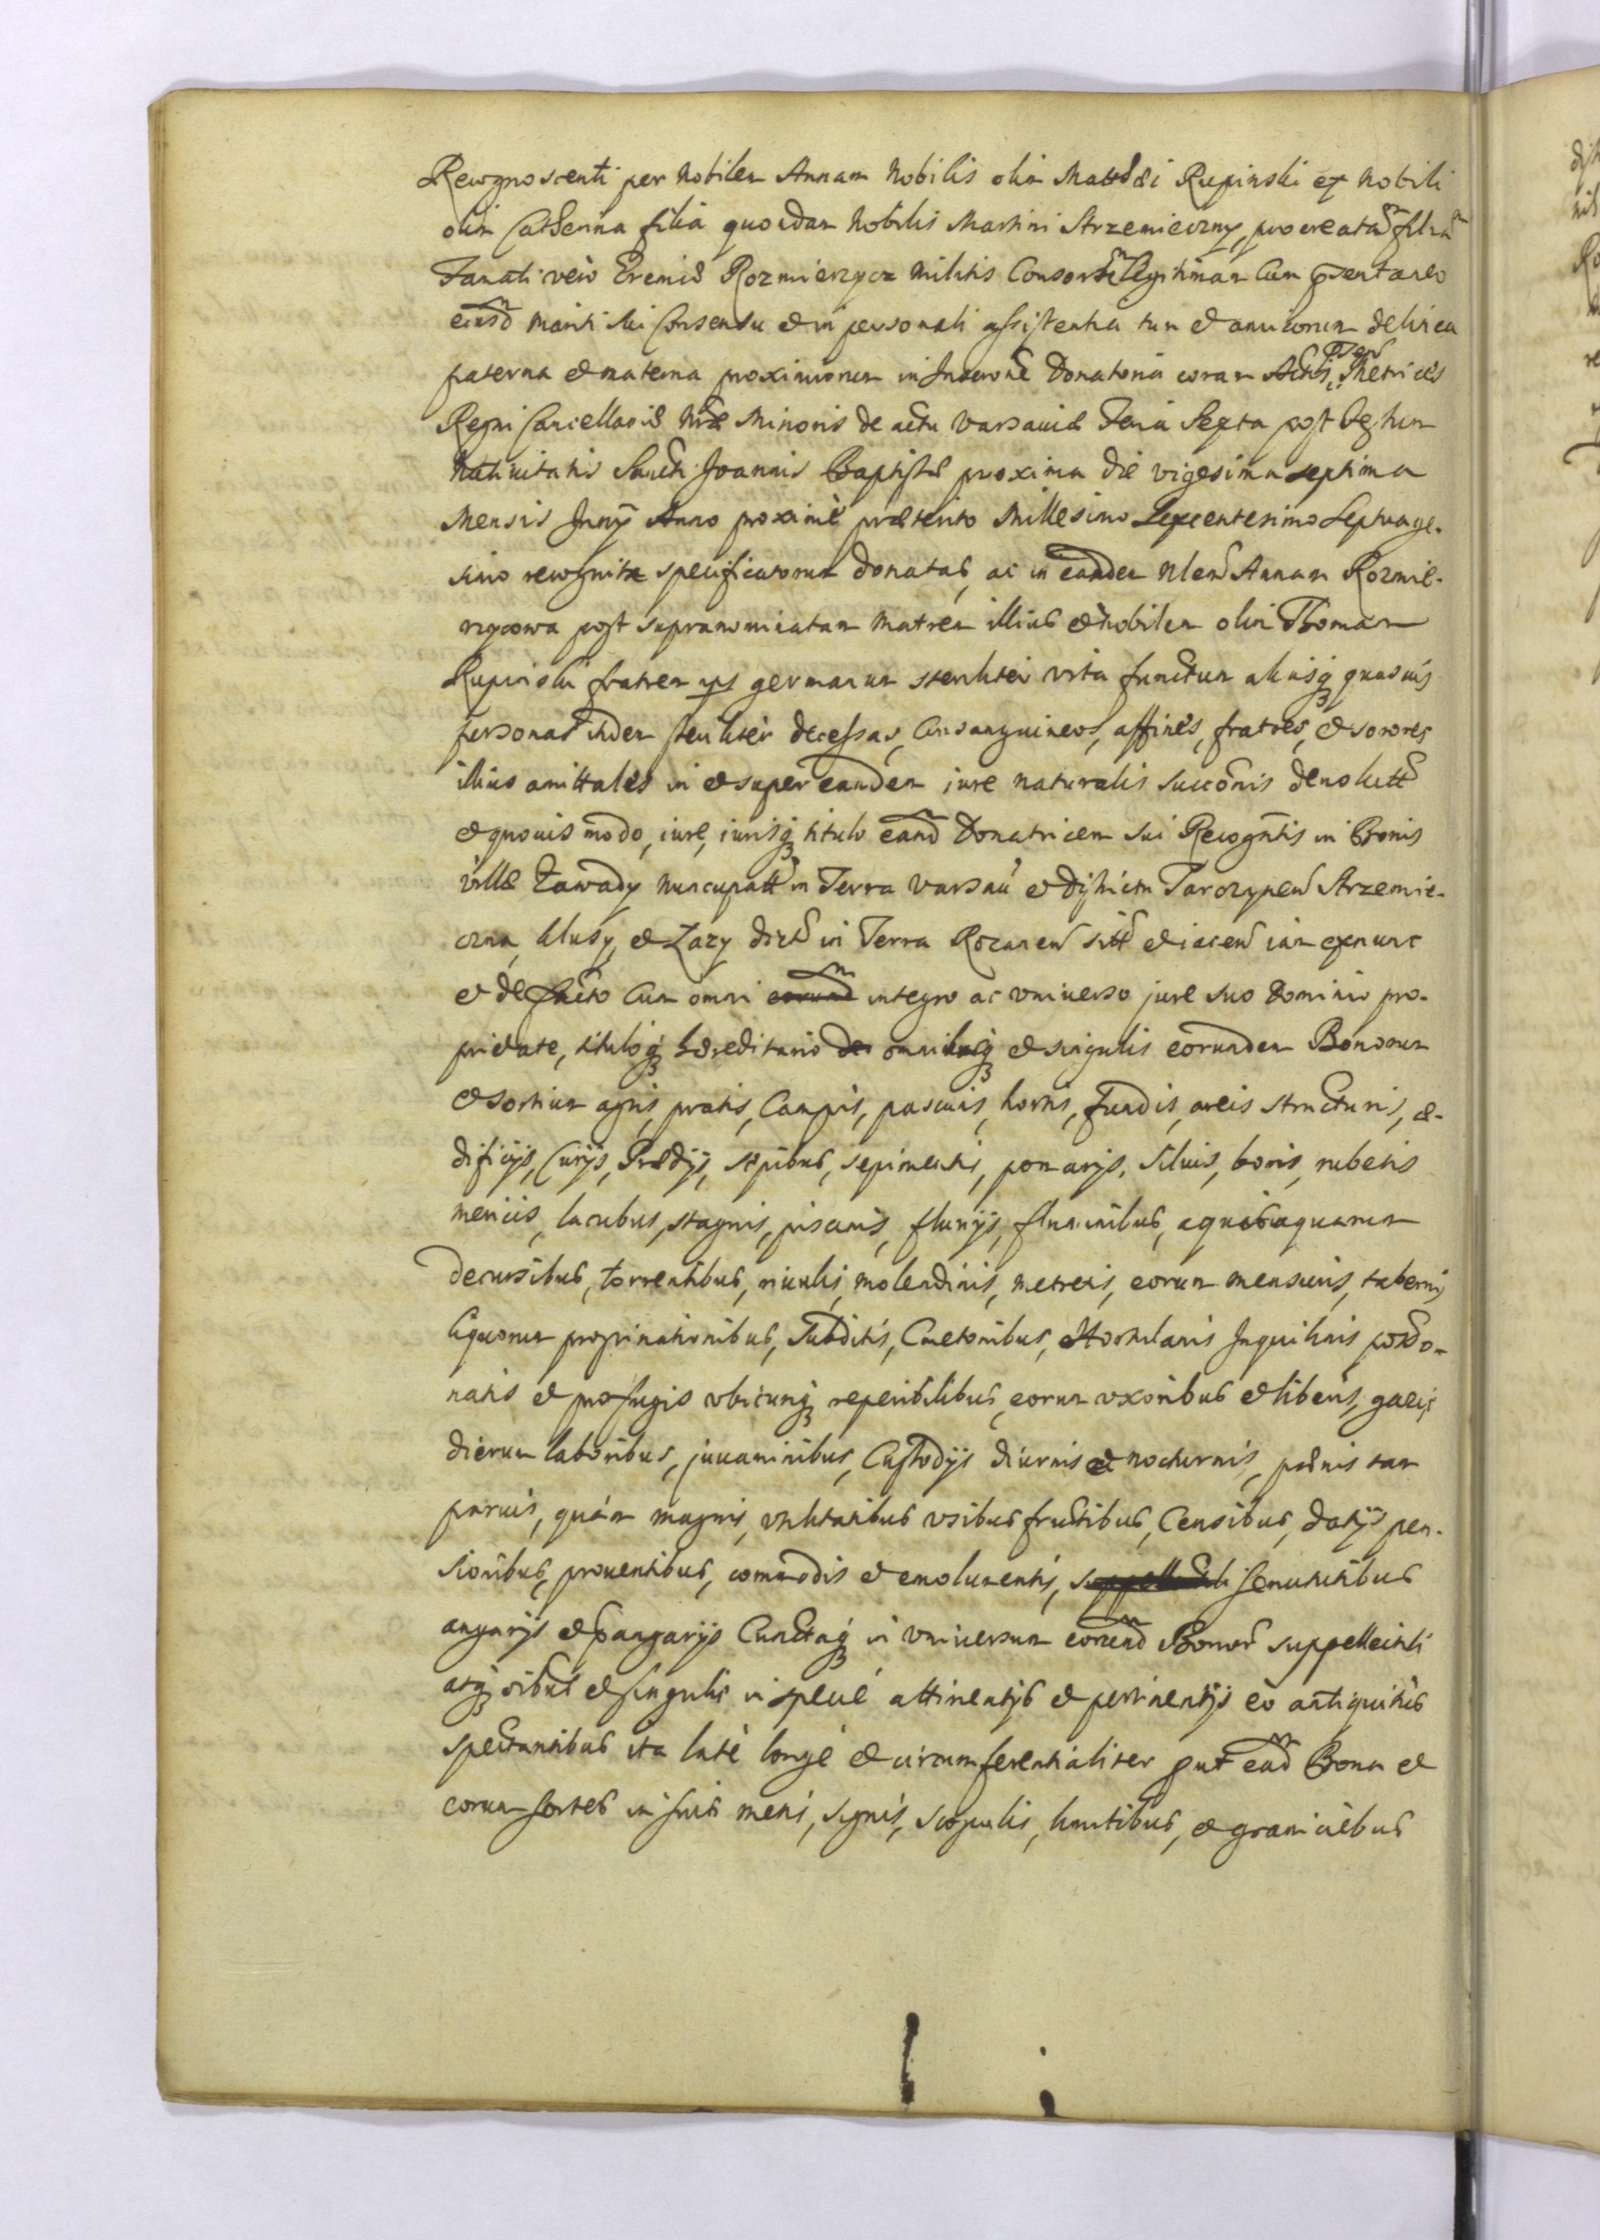 Recognoscenti per Nobilem Annam Nobilis olim Matthæi Rupinski ex Nobili
olim Catherina filia quondam Nobilis Martini Strzemieczny, procreatã filiã
Famati vero Eremiæ Rozmierzycz Militis Consortẽ Legitimam Cum præsentaneo
eiusd Mariti sui Consensu et in personali assistentia tum et amicorum de linea
paterna et materna proximiorum in Inscrone Donatoria coram Actis psen Metrices
Regni Cancellariæ Nræ Minoris de actu Varsaviæ Feria Sexta post Festum
Nativitatis Sancti Joannis Baptistæ proxima die vigesima septima
Mensis Junÿ Anno proximè præterito Millesimo Sexcentesimo Septuage-
simo recognitæ specificatorum donatas, ac in eandem Nlem Annam Rozmie-
rzycowa post supranominatam Matrem illius et Nobilem olim Thomam
Rupinski fratrem ips germanum steriliter vita functum aliasq quasuis
personas ibidem steriliter decessas, Consanguineos, affines, fratres, et sorores
illius amittales in et super eandem iure naturalis succonis deuolutt
et quouis modo, iure, iurisq titulo eand Donatricem sui Recogntis in Bonis
villæ Zawady nuncupatt in Terra Varsau et Districtu Tarczynen Strzemie-
czna, Kluſy, et Zazy dict in Terra Rozanen sitt et iacen iam exnunc
et de facto Cum omni integro ac vniuerso jure suo Dominio pro-
prietate, tituloq hæreditario omnibusq et singulis eorundem Bonorum
et Sortium agris, pratis, Campis, pascuis, hortis, fundis, areis structuris, æ-
dificijs, Curijs, Prædijs, sepibus, sepimentis, pomarijs, siluis, boris, rubetis
mericis, lacubus, stagnis, piscinis, fluuijs, fluminibus, aquis aquarum
decursibus, torrentibus, riuulis, molendinis, metretis, eorum mensuris, tabernis
liquorum propinationibus, Subditis, Cmetonibus, Hortulanis Inquilinis
natis et profugis vbicunq reperibilibus, eorum vxoribus et liberis,
dierum laboribus, juuaminibus, Custodijs diurnis et nocturnis, pænis tam
paruis, quàm magnis, vtilitatibus vsibus fructibus, Censibus, datijs pen-
sionibus, prouentibus, commodis et emolumentis, seruitutibus
angarijs et pangarijs Cunctaq in vniuersum eorund Bonor suppellectili
atq oibus et singulis in specie attinentijs et pertinentijs eo antiquitus
spectantibus ita latè longè et circumferentialiter put ead Bona et
eorum sortes in suis metis, signis, scopulis, limitibus, et graniciebus